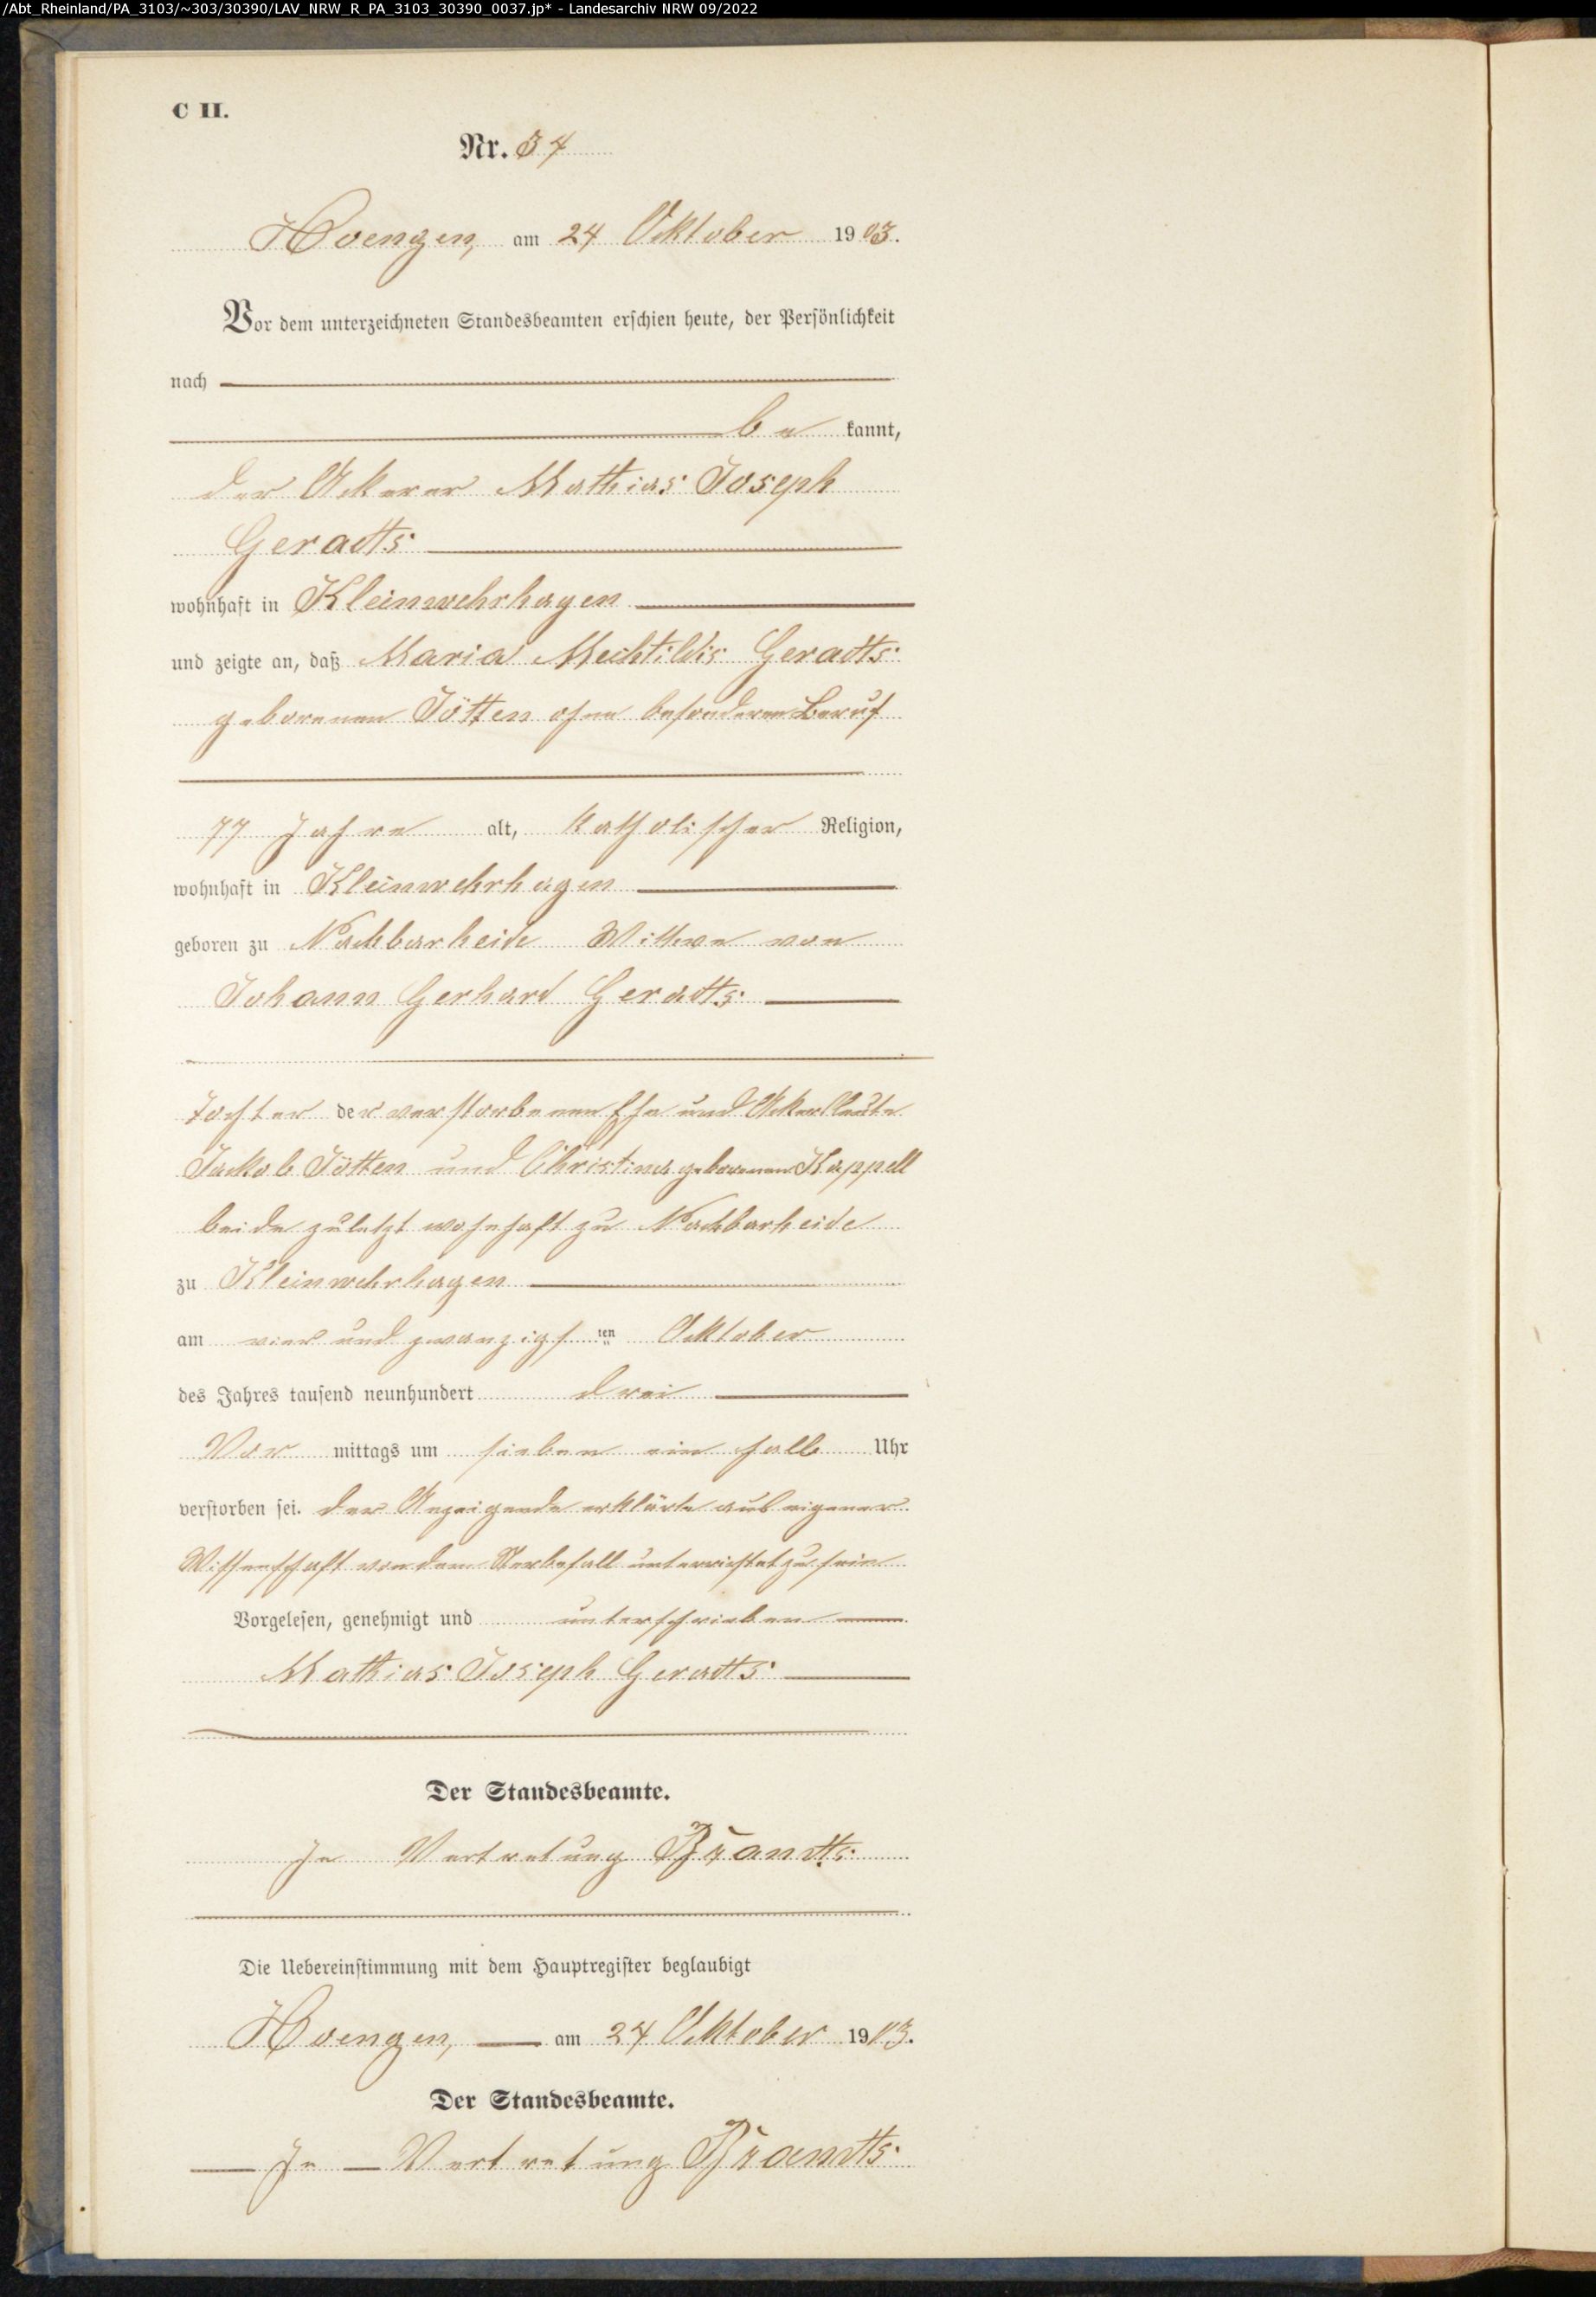 /Abt_Rheinland/PA_3103/~303/30390/LAV_NRW_R_PA_3103_30390_0037.jp* - Landesarchiv NRW 09/2022
C II.
Nr. 34
Hoengen, am 24 Oktober 1903.
Vor dem unterzeichneten Standesbeamten erschien heute, der Persönlichkeit
nach
be kannt,
der Ackerer Mathias Joseph
Geradts
wohnhaft in Kleinwehrhagen
und zeigte an, daß Maria Mechtildis Geradts
geborenen Jötten ohne besonderen Beruf
77 Jahre alt, katholischer Religion,
wohnhaft in Kleinwehrhagen
geboren zu Nachbarheide Wittwe von
Johann Gerhard Geradts
Tochter der verstorbenen Ehe und Ackersleute
Jackob Jötten und Christina geborenen Kappell
beide zuletzt wohnhaft zu Nachbarheide
zu Kleinwehrhagen
am vier und zwanzigsten Oktober
des Jahres tausend neunhundert drei
Vor mittags um sieben ein halb Uhr
verstorben sei. Der Anzeigende erklärte aus eigener
Wissenschaft von dem Sterbefall unterrichtet zu sein
Vorgelesen, genehmigt und unterschrieben
Mathias Joseph Geradts
Der Standesbeamte.
In Vertretung Brandts
Die Uebereinstimmung mit dem Hauptregister beglaubigt
Hoengen, am 24 Oktober 1903.
Der Standesbeamte.
In Vertretung Brandts